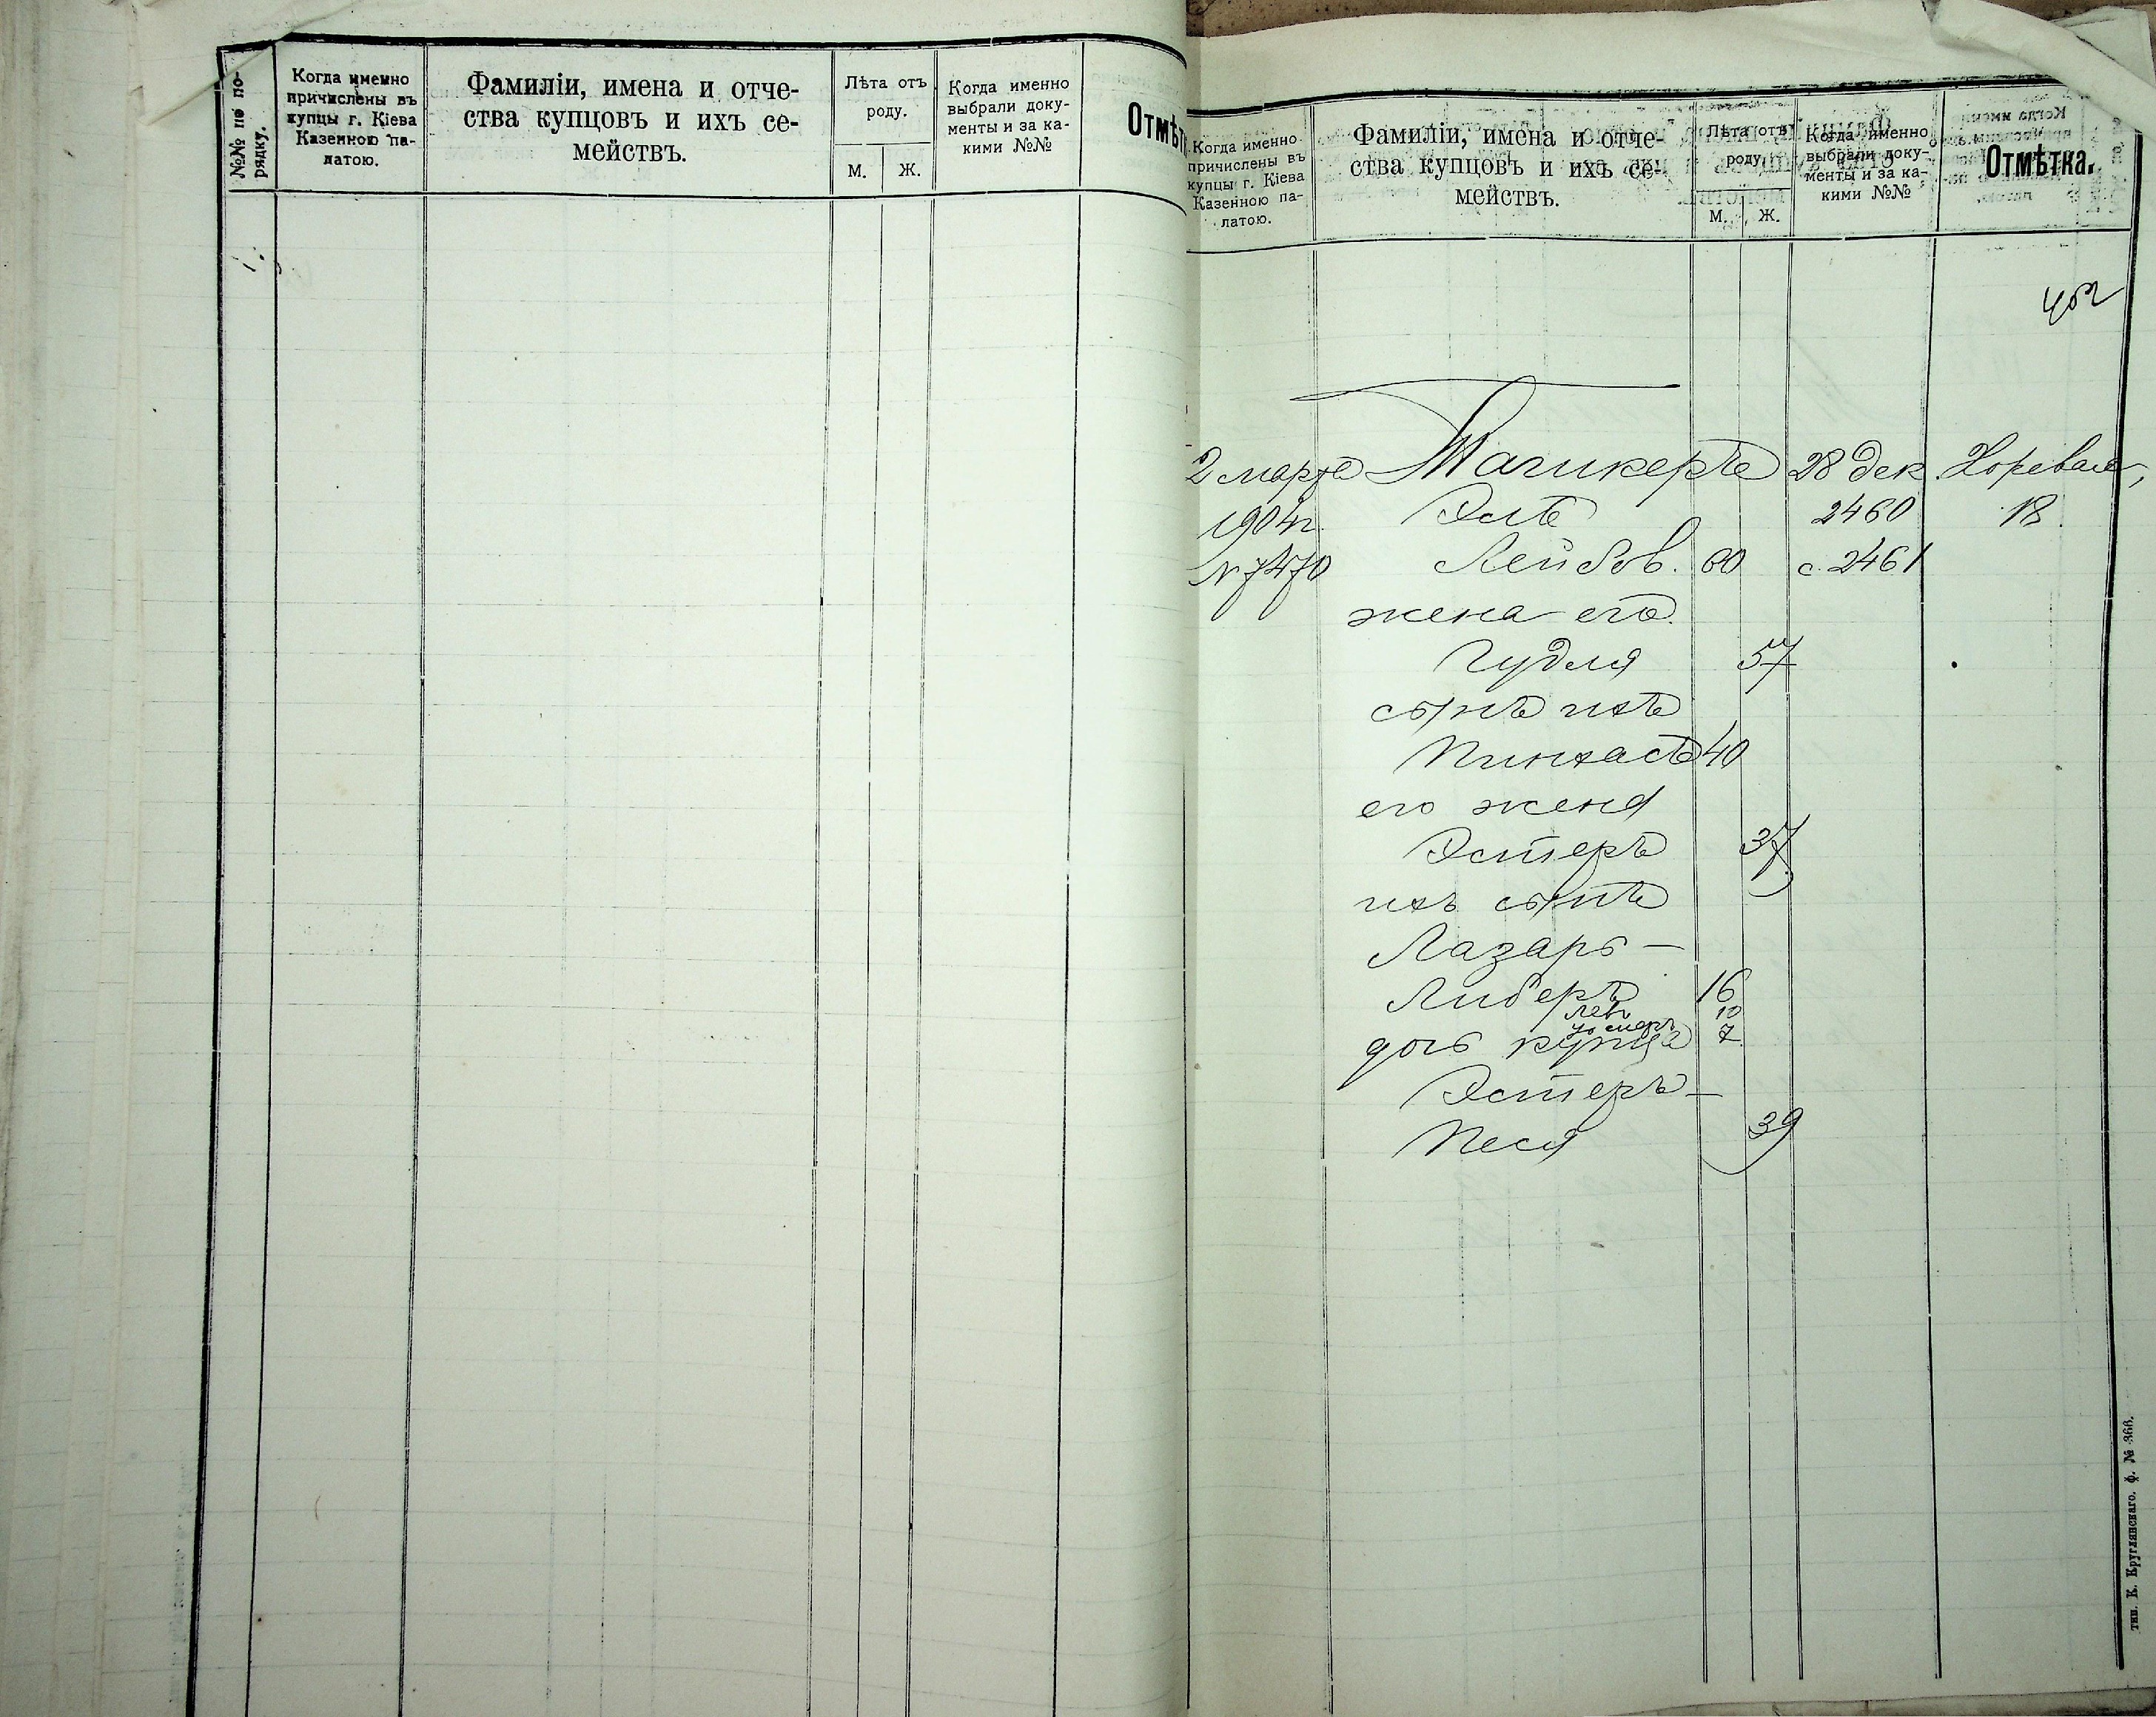 №№ по по-
рядку.
Когда именно
причислены въ
купцы г. Кіева
Казенною па-
латою.
Фамиліи, имена и отче-
ства купцовъ и ихъ се-
мействъ.
Лѣта отъ
роду.
М.
Ж.
Когда именно
выбрали доку-
менты и за ка-
кими №№
Отмѣт
Когда именно
причислены въ
купцы г. Кіева
Казенною па-
латою.
Фамиліи, имена и отче-
ства купцовъ и ихъ се-
мействъ.
Лѣта отъ
роду.
М.
Ж.
Когда именно
выбрали доку-
менты и за ка-
кими №№
Отмѣтка.
402
2 марта 28 дек
1904 г. 2460 18
N 7470 Лейбов. 60 с. 2461
жена его
Гудля 57
сынъ ихъ
Пинхасъ 40
его жена
Эстеръ 37
ихъ сынъ
Лазарь —
Либеръ 16
Левъ 10
7
дочь купца
Эстеръ —
Песя 39
тип. К. Круглянскаго. ф. № 366.